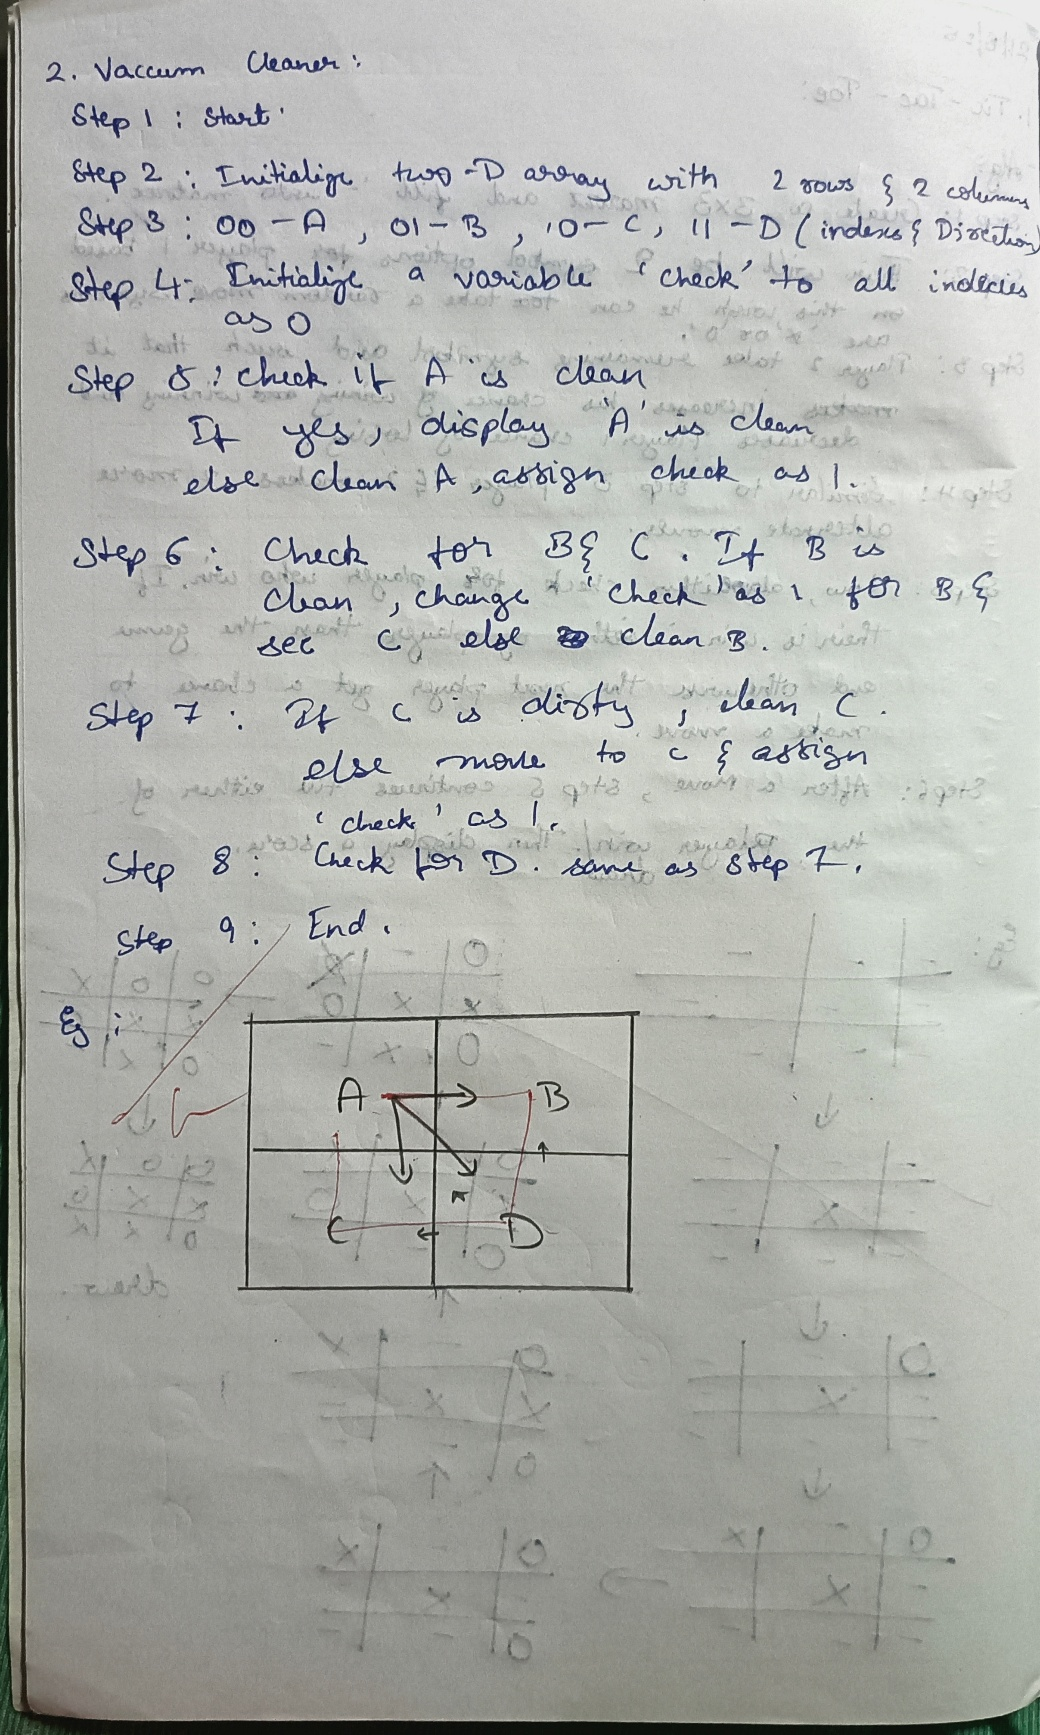 2. Vaccum Cleaner :
Step 1 : Start.
Step 2 : Initialize two-D array with 2 rows & 2 columns
Step 3 : 00 - A , 01 - B , 10 - C, 11 - D ( indexs & Direction)
Step 4 : Initialize a variable 'check' to all indecies
as 0
Step 5 : check if A is clean
If yes, display 'A' is clean
else clean A , assign check as 1.
Step 6 : Check for B & C . If B is
clean , change 'check' as 1 for B &
see C else clean B .
Step 7 : If C is dirty , clean C .
else move to C & assign
'check' as 1.
Step 8 : Check for D . same as step 7 .
Step 9 : End .
Eg :
A B
C D